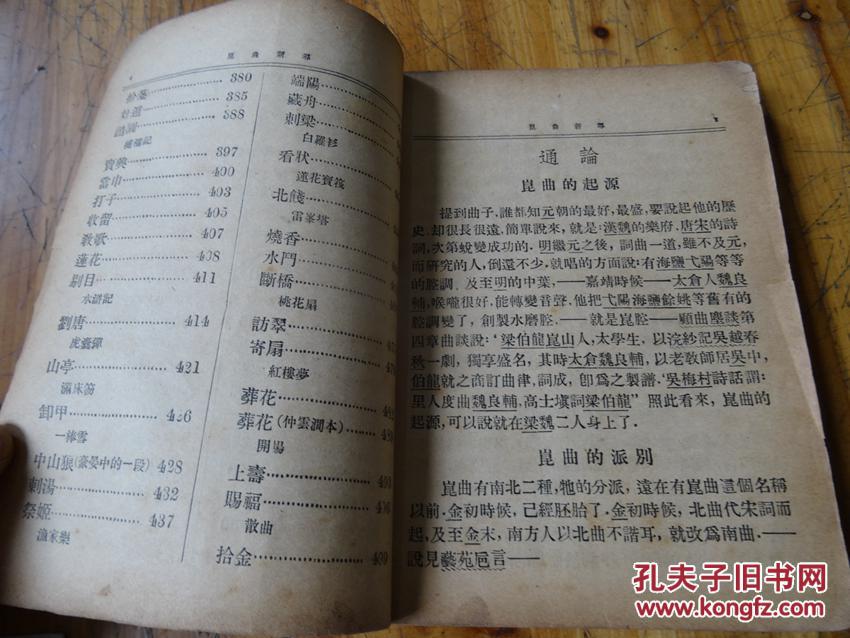 崑曲新導
拾金……380
好選……385
388
繡襦記
賣興……397
當巾……400
打子……403
收留……405
教歌……407
蓮花……408
剔目……411
水滸記
劉唐……414
虎囊彈
山亭……421
滿床笏
卸甲……426
一捧雪
中山狼(豪宴中的一段) 428
刺湯……432
祭姬……437
漁家樂
端陽
藏舟
刺梁
白羅衫
看狀
蓮花寶筏
北餞
雷峯塔
燒香
水鬥
斷橋
桃花扇
訪翠
寄扇
紅樓夢
葬花
葬花(仲雲澗本)
開場
上壽
賜福
散曲
拾金
崑曲新導
通論
崑曲的起源
提到曲子,誰都知元朝的最好,最盛,要說起他的歷
史,却很長很遠,簡單說來,就是:漢魏的樂府,唐宋的詩
詞,次第蛻變成功的.明繼元之後,詞曲一道,雖不及元,
而研究的人,倒還不少,就唱的方面說:有海鹽弋陽等等
的腔調.及至明的中葉,——嘉靖時候——太倉人魏良
輔,喉嚨很好,能轉變音聲.他把弋陽海鹽餘姚等舊有的
腔調變了,創製水磨腔.——就是崑腔——顧曲麈談第
四章曲談說:'梁伯龍崑山人,太學生,以浣紗記吳越春
秋一劇,獨享盛名,其時太倉魏良輔,以老教師居吳中,
伯龍就之商訂曲律,詞成,卽爲之製譜.'吳梅村詩話謂:
里人度曲魏良輔,高士填詞梁伯龍"照此看來,崑曲的
起源,可以說就在梁魏二人身上了.
崑曲的派別
崑曲有南北二種,牠的分派,遠在有崑曲這個名稱
以前.金初時候,已經胚胎了.金初時候,北曲代宋詞而
起,及至金末,南方人以北曲不諧耳,就改爲南曲.——
說見藝苑巵言——
孔夫子旧书网
www.kongfz.com